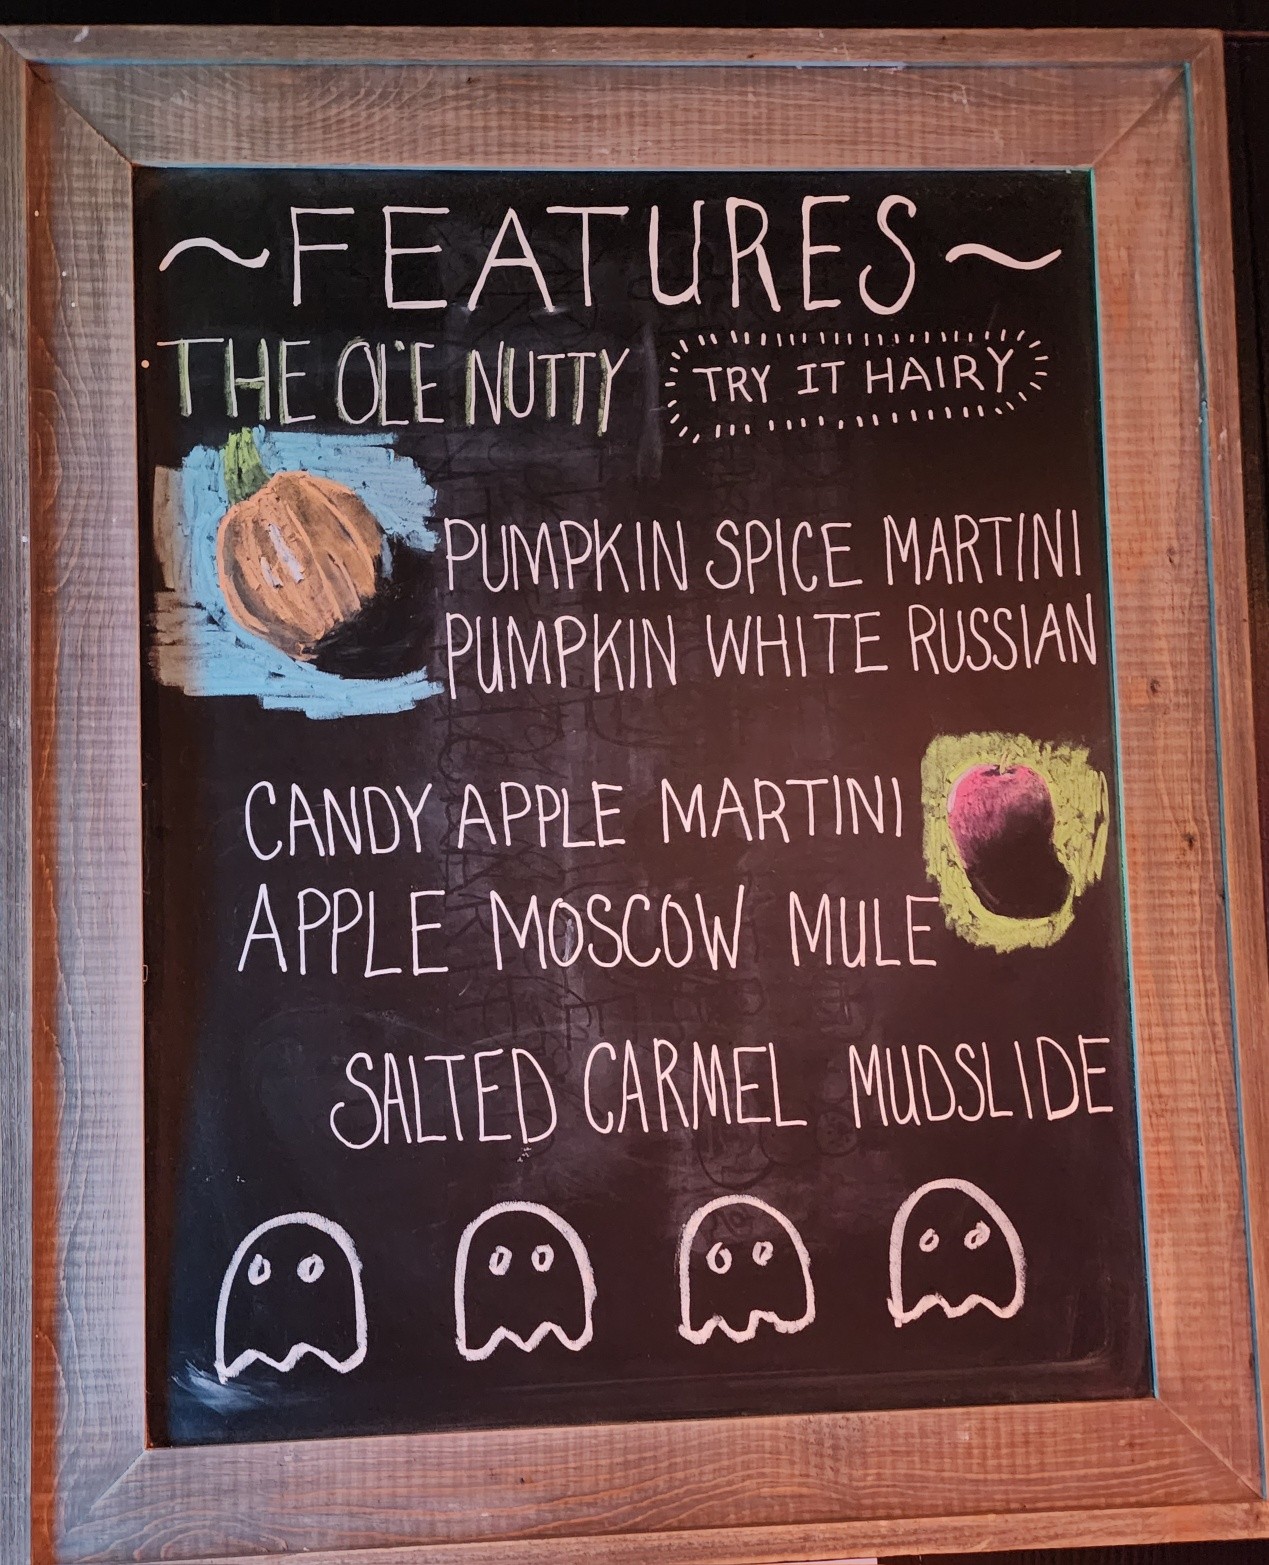 ~FEATURES~
THE OL'E NUTTY TRY IT HAIRY
PUMPKIN SPICE MARTINI
PUMPKIN WHITE RUSSIAN
CANDY APPLE MARTINI
APPLE MOSCOW MULE
SALTED CARMEL MUDSLIDE